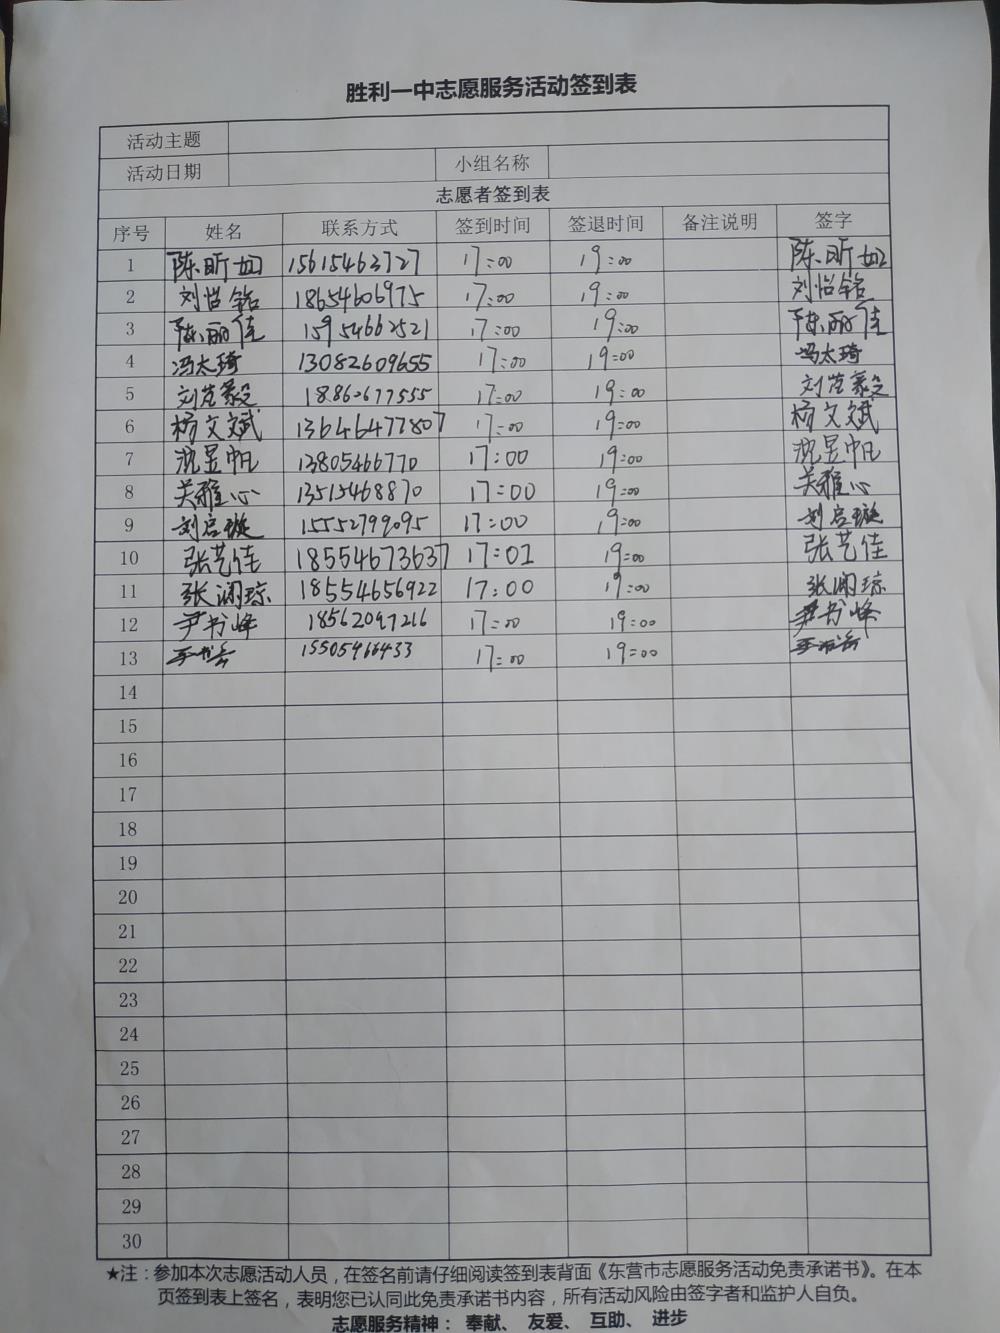 胜利一中志愿服务活动签到表
活动主题
活动日期 小组名称
志愿者签到表
序号 姓名 联系方式 签到时间 签退时间 备注说明 签字
1 陈昕如 15615463727 17:00 19:00 陈昕如
2 刘怡铭 18654606975 17:00 19:00 刘怡铭
3 陈丽佳 15954662521 17:00 19:00 陈丽佳
4 冯太琦 13082609655 17:00 19:00 冯太琦
5 刘 毅 17:00 19:00 刘 毅
6 杨文斌 13646477807 17:00 19:00 杨文斌
7 沈昱帆 13805466770 17:00 19:00 沈昱帆
8 关雅心 13515468870 17:00 19:00 关雅心
9 刘启璇 15552799095 17:00 19:00 刘启璇
10 张艺佳 18554673637 17:01 19:00 张艺佳
11 张澜琼 18554656922 17:00 19:00 张澜琼
12 尹书峰 18562097216 17:00 19:00 尹书峰
13 15505466433 17:00 19:00
14
15
16
17
18
19
20
21
22
23
24
25
26
27
28
29
30
★注：参加本次志愿活动人员，在签名前请仔细阅读签到表背面《东营市志愿服务活动免责承诺书》。在本
页签到表上签名，表明您已认同此免责承诺书内容，所有活动风险由签字者和监护人自负。
志愿服务精神： 奉献、 友爱、 互助、 进步